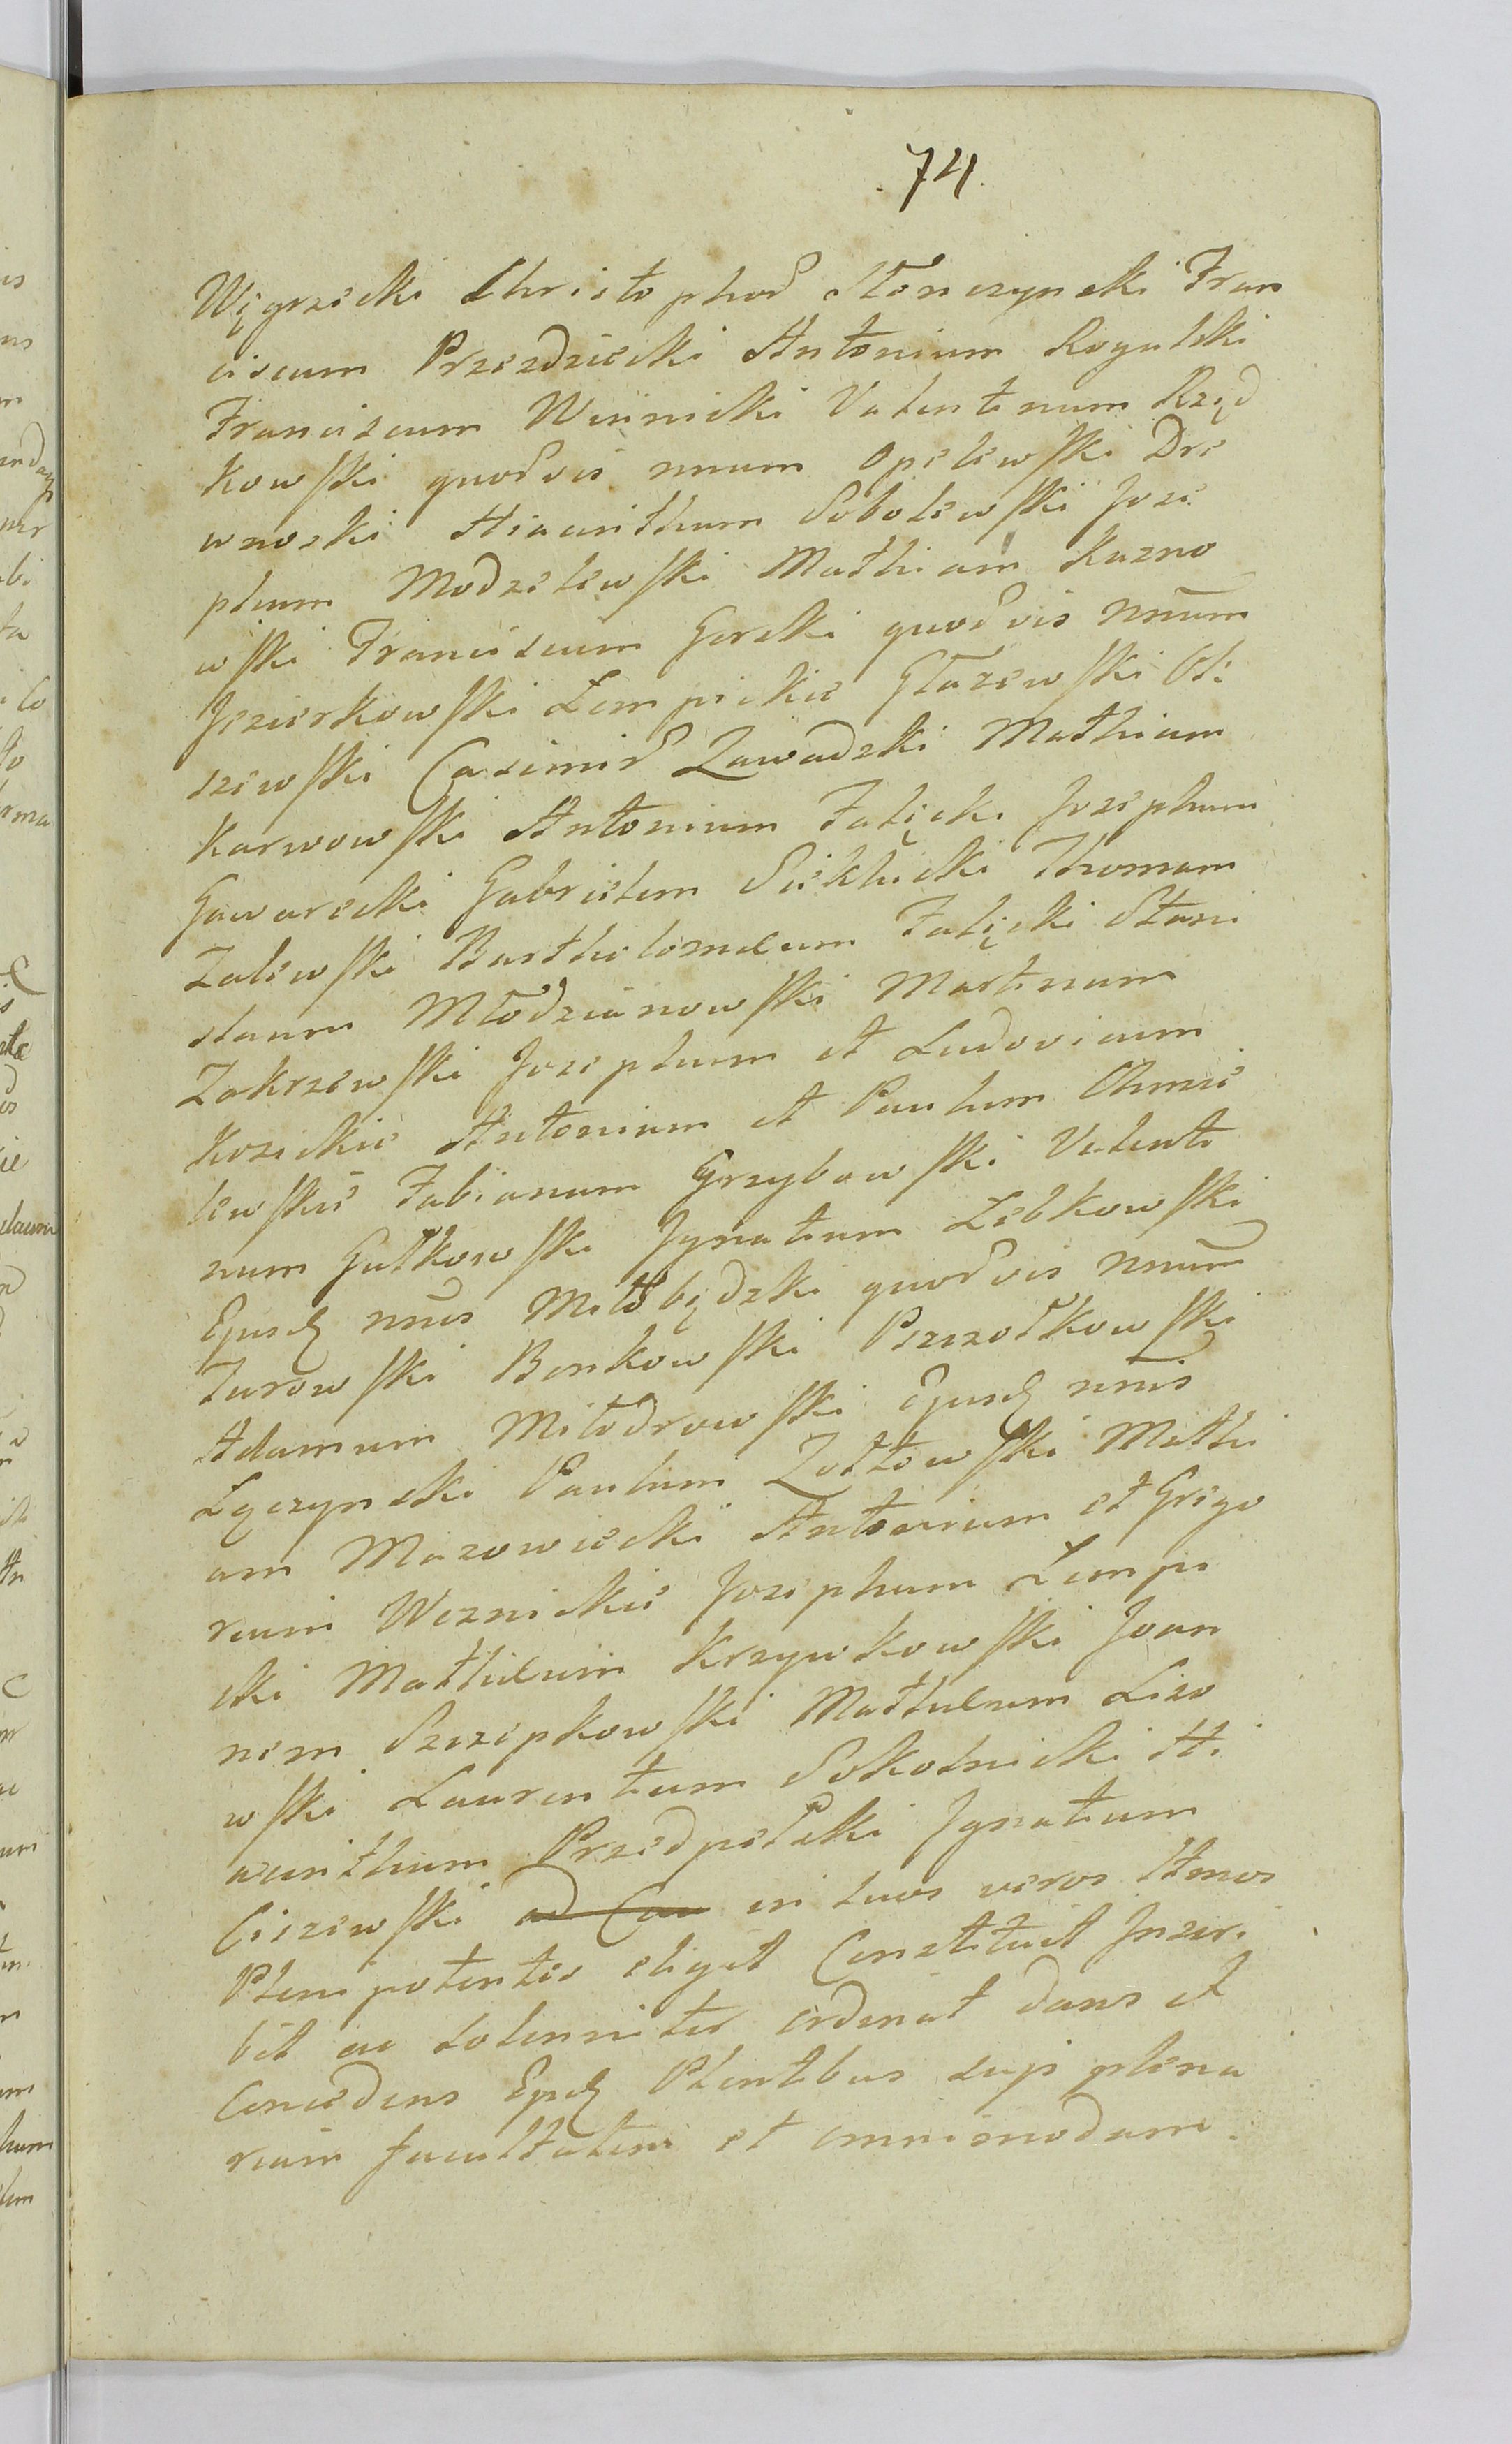 .74.
Węgrzecki Christophor Słonczynski Fran
ciscum Przezdziecki Antonium Rogulski
Franciscum Winnicki Valentinum Rząd
kowski quodvis nnum Opelewski Dre
wnoski Hiacinthum Sobolewski Jose
phum Modzelewski Mathiam Kuzno
wski Franciscum Gorski quodvis Nnum
Jeziorkowski Lempickie Głazewski Ol:
szewski Casimir Zawadzki Mathiam
Karwowski Antonium Falęcki Josephum
Gawarecki Gabrielem Sieklucki Thomam
Zalewski Bartholomeum Falęcki Stani
slaum Młodzianowski Martinum
Zakrzewski Josephum et Ludovicum
Kosickie Antonium et Paulum Chmie
lewskie Fabianum Grzybowski Valenti
num Gutkowski Ignatium Lebkowski
Ejusd nnis Miłobędzki quodvis Nnum
Turowski Bonkowski Pszczołkowski
Adamum Milodrowski Ejusd nnis
Lączynski Paulum Zołtowski Mathi
am Mazowiecki Antonium et Grego
rium Woznickie Josephum Lempi
cki Mathaeum Krzywkowski Joan
nem Szczepkowski Mathaeum Liso
wski Laurentium Sokolnicki Hi
acinthum Przedpełski Ignatium
Ciszewski ad Cau in suos veros Itmos
Plenipotentes eligit Constituit Inscri
bit ac solenniter ordinat dans et
Concedens Ejusd Plentibus suis plena
riam facultatem et omnimodam.